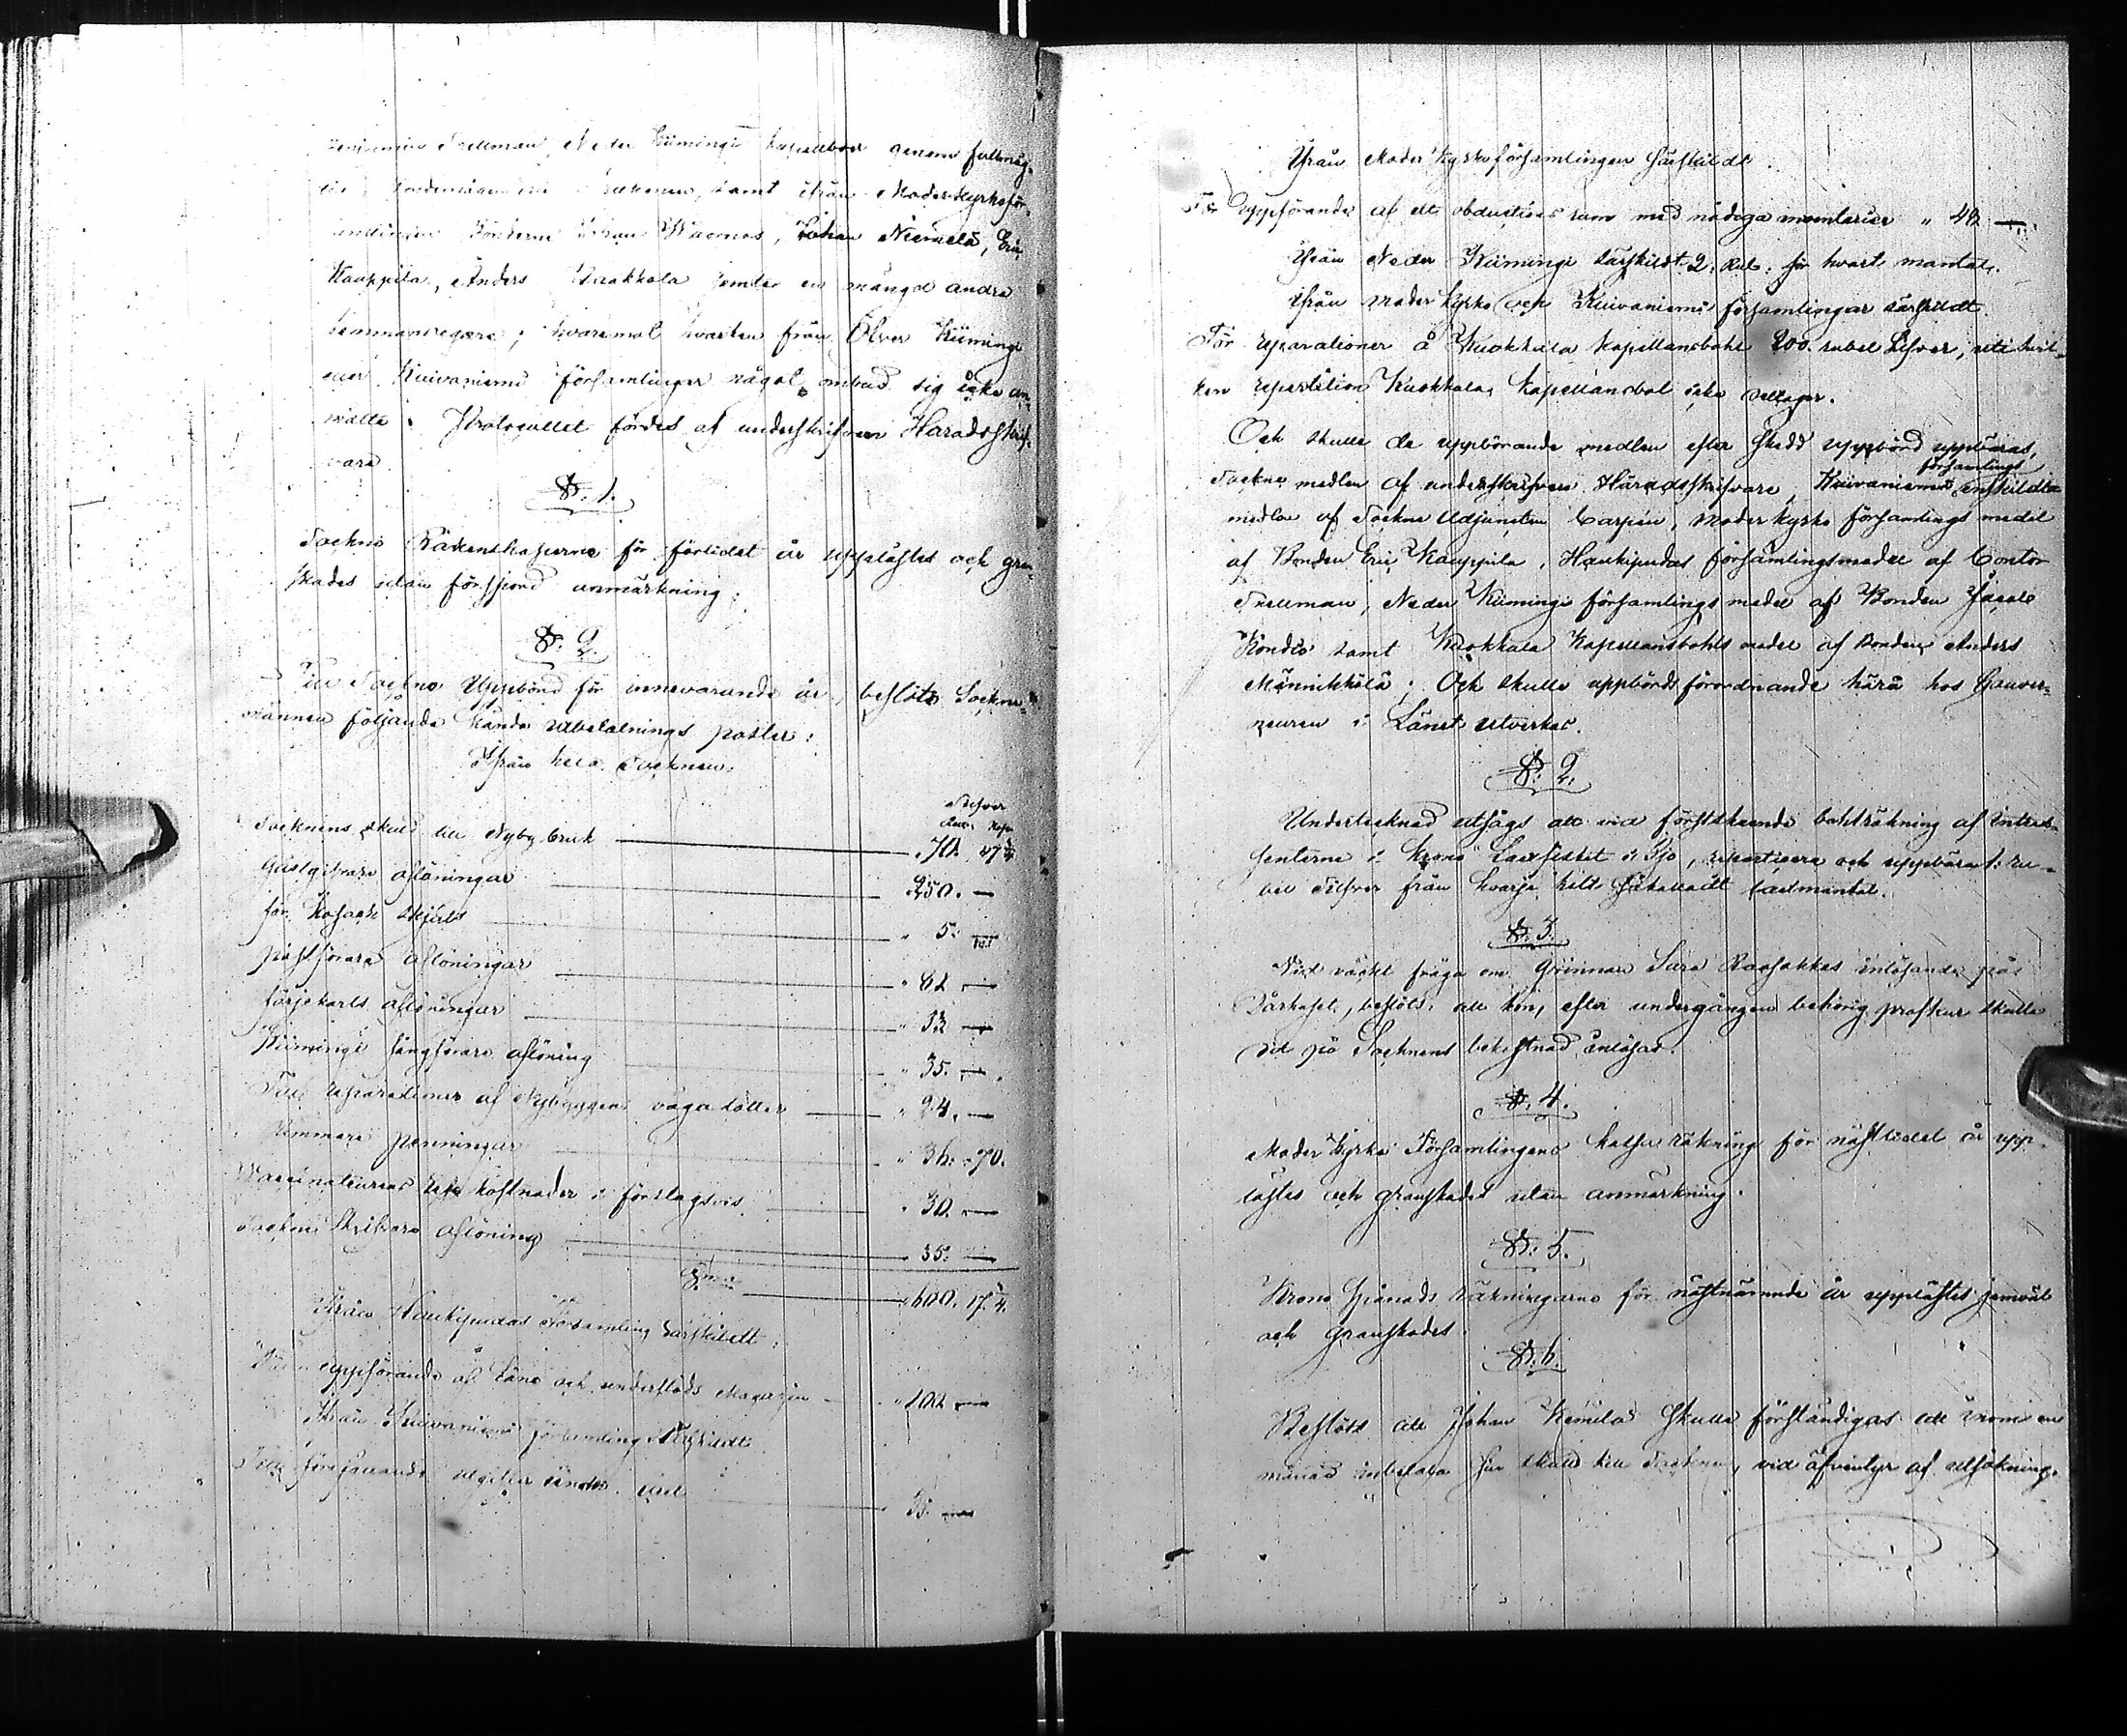 Snellman, Neder Kiiminge kapellboar genom fullmäg-
samt ifrån Moderkyrkoför-
Bönderne Johan Waomas, Johan Niemelä, Eric
Kauppila, Anders Kuokkala jemte en mängd andra
hemmansegare; hvaremot hvarken från Öfver Kiiminge
eller Kuivaniemi församlingar något ombud sig icke an-
mälte. Protocollet fördes af underskrifven Häradsskrif-
vare.
§. 1.
Sockne Räkenskaperne för förlidet år upplästes och gran-
skades utan försspord anmärkning.
§: 2.
Till Sockne Uppbörd för innevarande år, beslöts Sockne-
männen följande kända utbetalnings poster:
Ifrån hela Socknen.
Silfver
Rub. Kop.
Socknens skuld till Nyby bruk " 70. 47 ¼
Gästgifvare aflöningar " 250. —
för Kosack skjuts " 5. —
postförare aflöningar " 62 —
färjekarls aflöningar " 52 —
Kiiminge fångförare aflöning " 35. —
Till reparationer af Nybyggens vägastötter " 24. —
Kimmare penningar " 36. 70.
Vaccinateurens rese kostnader i förslagsvis " 30. —
Sockne Skrifvare aflöning " 35. —
S:ma " 600. 17 ¼.
Ifrån Haukipudas Församling särskildt:
Till uppförande af Låne och understöds Magazin " 102 —
Ifrån Kuivaniemi församling särskildt
Till förefallande utgifter under året " 35. —
Ifrån Moder Kyrkoförsamlingen särskildt.
För uppförande af ett obductions rum med nödiga inventarier " 42 —
Ifrån Neder Kiiminge särskildt 2. Rub: för hvart mantal.
Ifrån Moder kyrko och Kuivaniemi församlingar särskildt
För reparationer å Kuokkala kapellansbohl 200. rubel Silfver, uti hvil-
ken repartition Kuokkala Kapellansbol icke deltager.
Och skulle de uppbörande medlen efter skedd uppbörd uppbäras,
Sockne medlen af underskrifven Häradsskrifvare, Kuivaniemi församlings enskildta
medlen af Sockne Adjuncten Carpén, moderkyrko församlings medel
af Bonden Eric Kauppila, Haukipudas församlingsmedel af Contor
Snellman, Neder Kiiminge församlings medel af Bonden Jacob
Köndes samt Kuokkala Kapellansbohls medel af bonden Anders
Männikkölä; Och skulle uppbördsförordnande härå hos Gouver-
neuren i Länet utverkas.
§: 2.
Undertecknad utsågs att vid förstskeende botsträkning af Intres-
senterne i Krono Laxfisket i Ijo, repartiera och uppbära 1. ru-
bel Silfver från hvarje helt skattadt laxmantal.
§: 3.
Vid väckt fråga om Qvinnan Sara Raasakkas inlösande på
Dårhuset, beslöts, att hon, efter undergången behörig profkur skulle
dit på Socknens bekostnad inlösas.
§. 4.
Moder Kyrko Församlingens kassa räkning för nästlidet år upp-
lästes och granskades utan anmärkning.
§: 5.
Krono Spanads räkningarne för nästnämnde år upplästes jemväl
och granskades.
§. 6.
Beslöts att Johan Kemilä skulle förständigas att inom en
månad inbetala sin skuld till Socknen, vid äfventyr af utsökning.